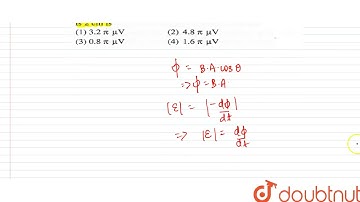 is 2 cm is
(1) 3.2 π μV (2) 4.8 π μV
(3) 0.8 π μV (4) 1.6 π μV
ϕ = B.A.cosθ
⇒ ϕ = B.A
|ε| = |-dϕ/dt|
⇒ |ε| = dϕ/dt
doubtnut